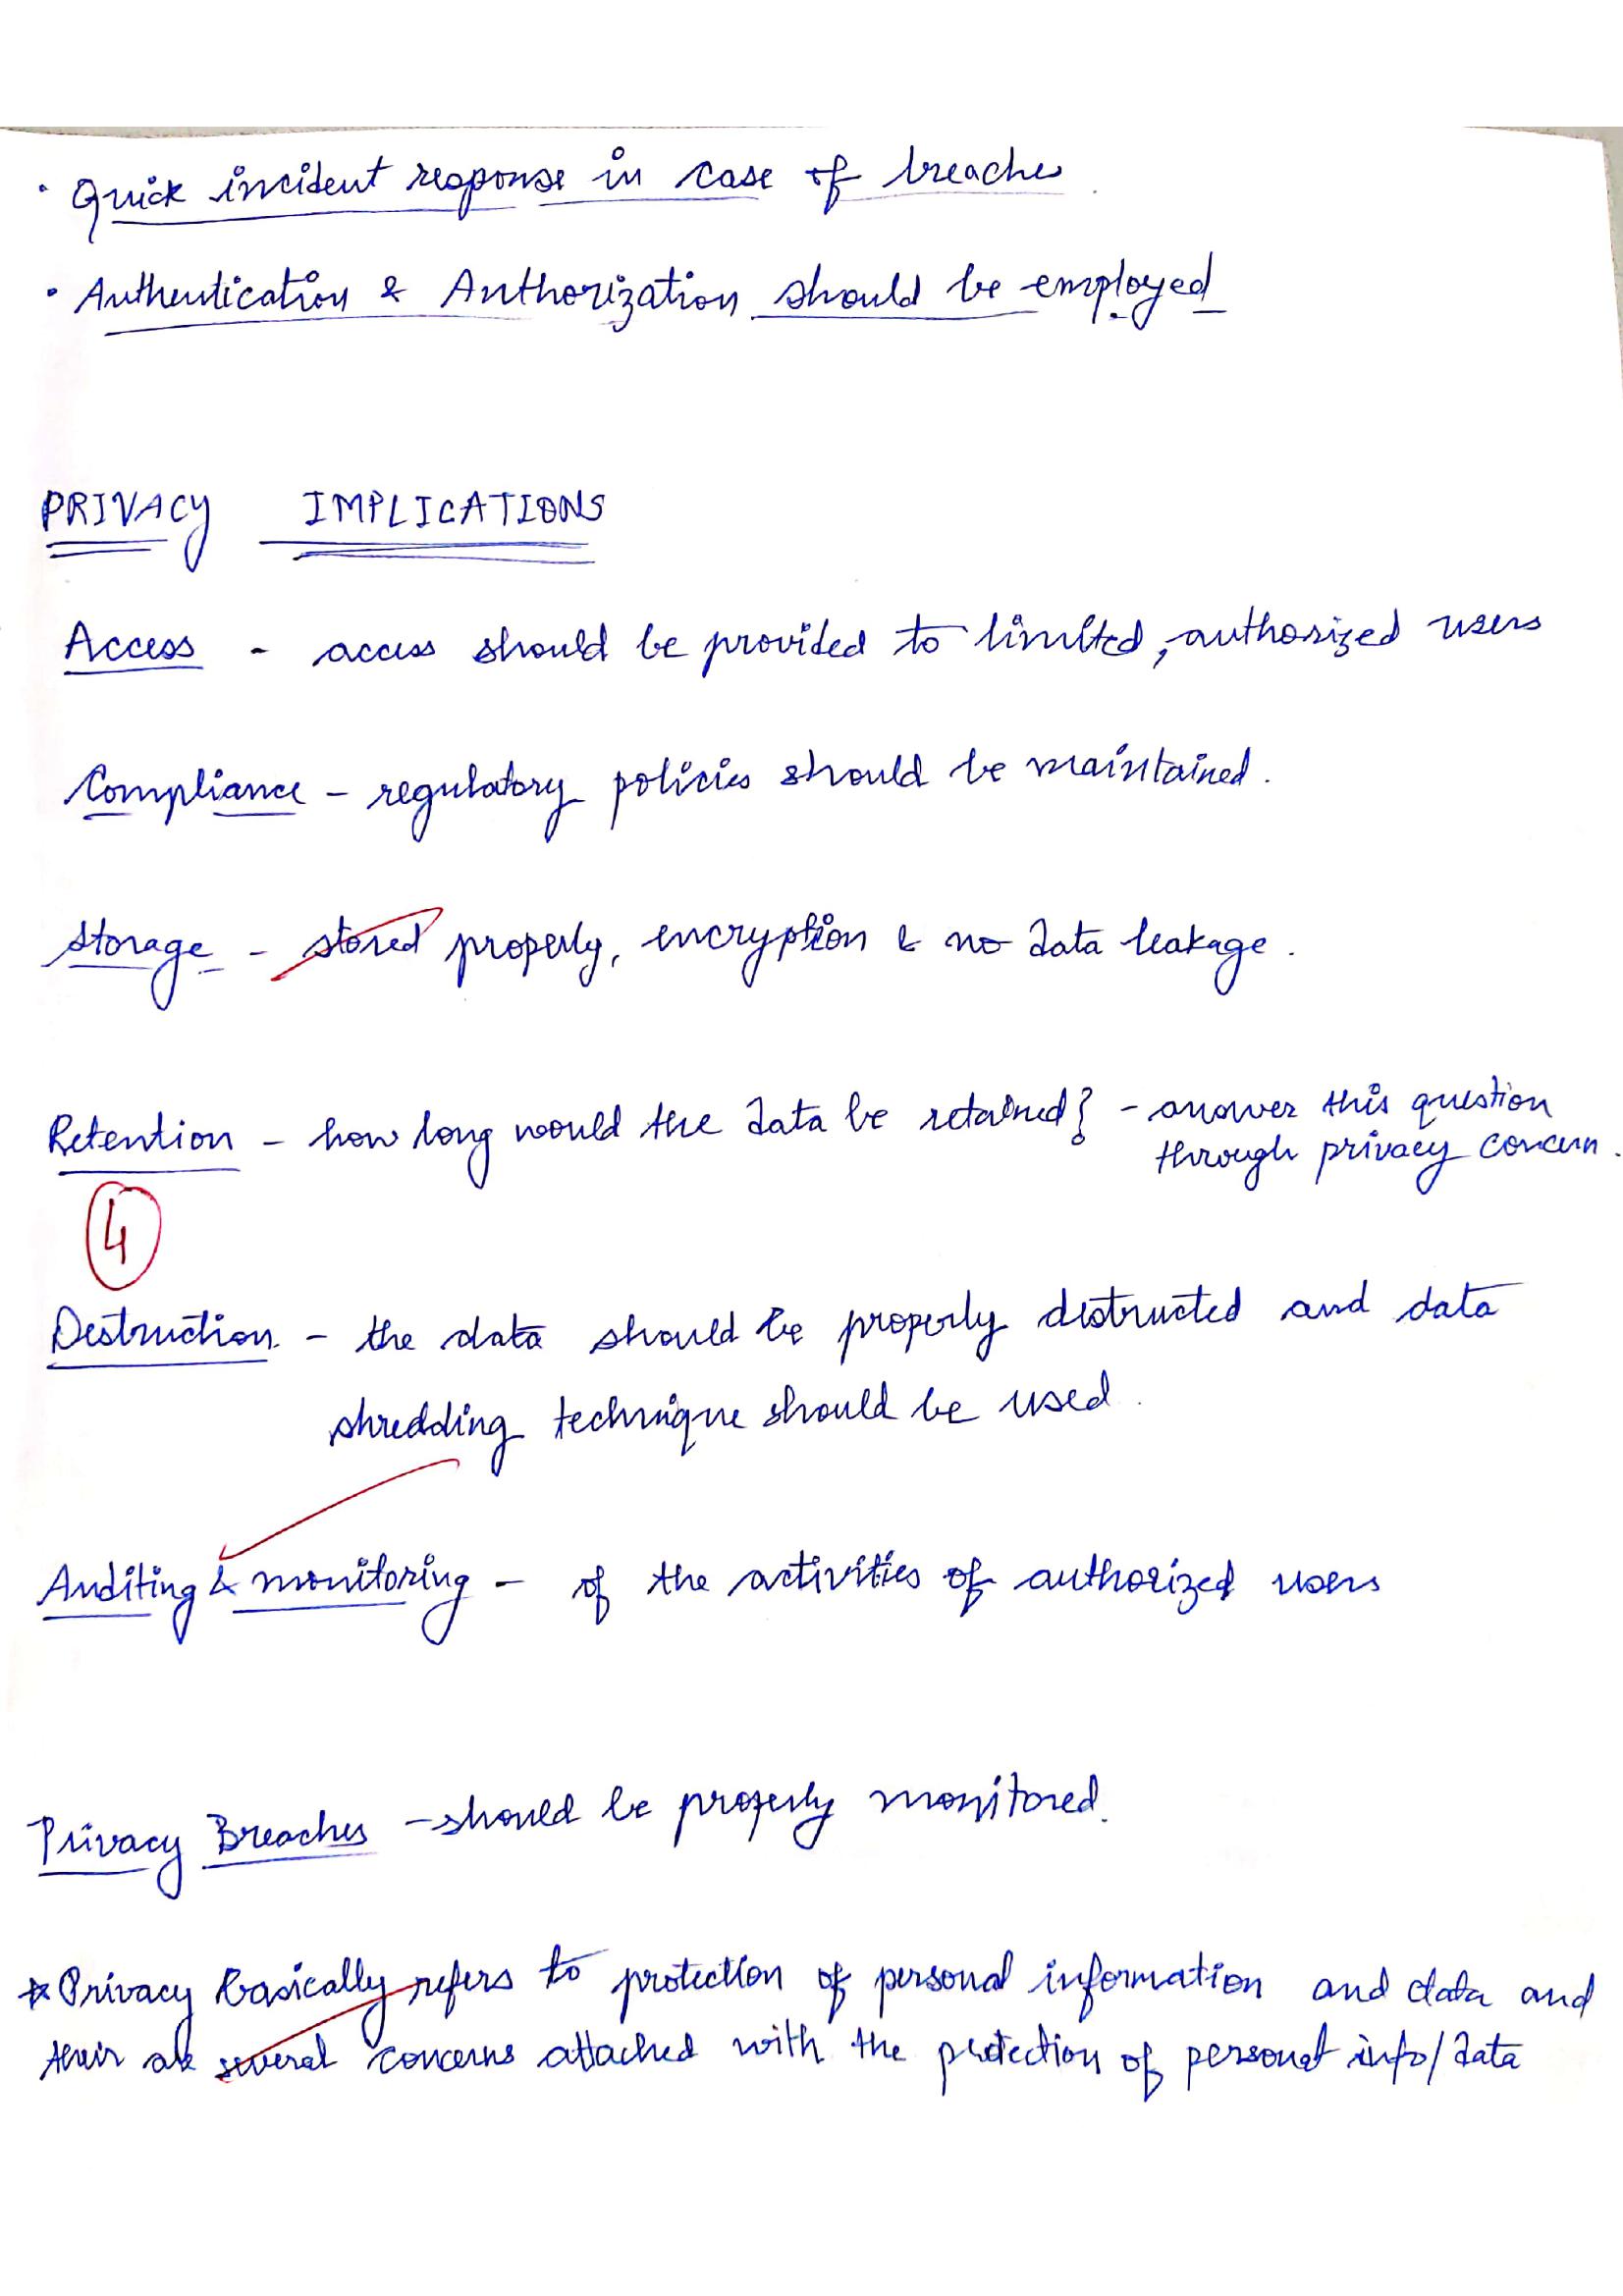 • Quick incident response in case of breaches.
• Authentication & Authorization should be employed
PRIVACY IMPLICATIONS
Access - access should be provided to limited, authorized users
Compliance - regulatory policies should be maintained.
Storage - stored properly, encryption & no data leakage.
Retention - how long would the data be retained? - answer this question
through privacy concern.
4
Destruction - the data should be properly destructed and data
shredding technique should be used.
Auditing & monitoring - of the activities of authorized users
Privacy Breaches - should be properly monitored.
* Privacy basically refers to protection of personal information and data and
their are several concerns attached with the protection of personal info/data